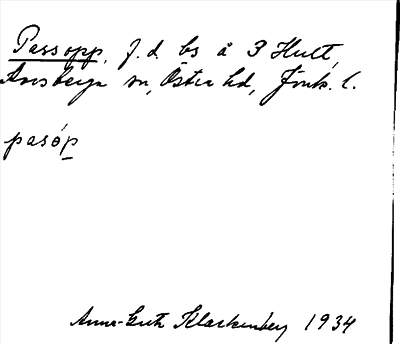 Passopp, f.d. bs å 3 Hult,
Almesberga sn, Östra hd, Jönk. l.
pasóp
Anna-Greta Klackenberg 1934